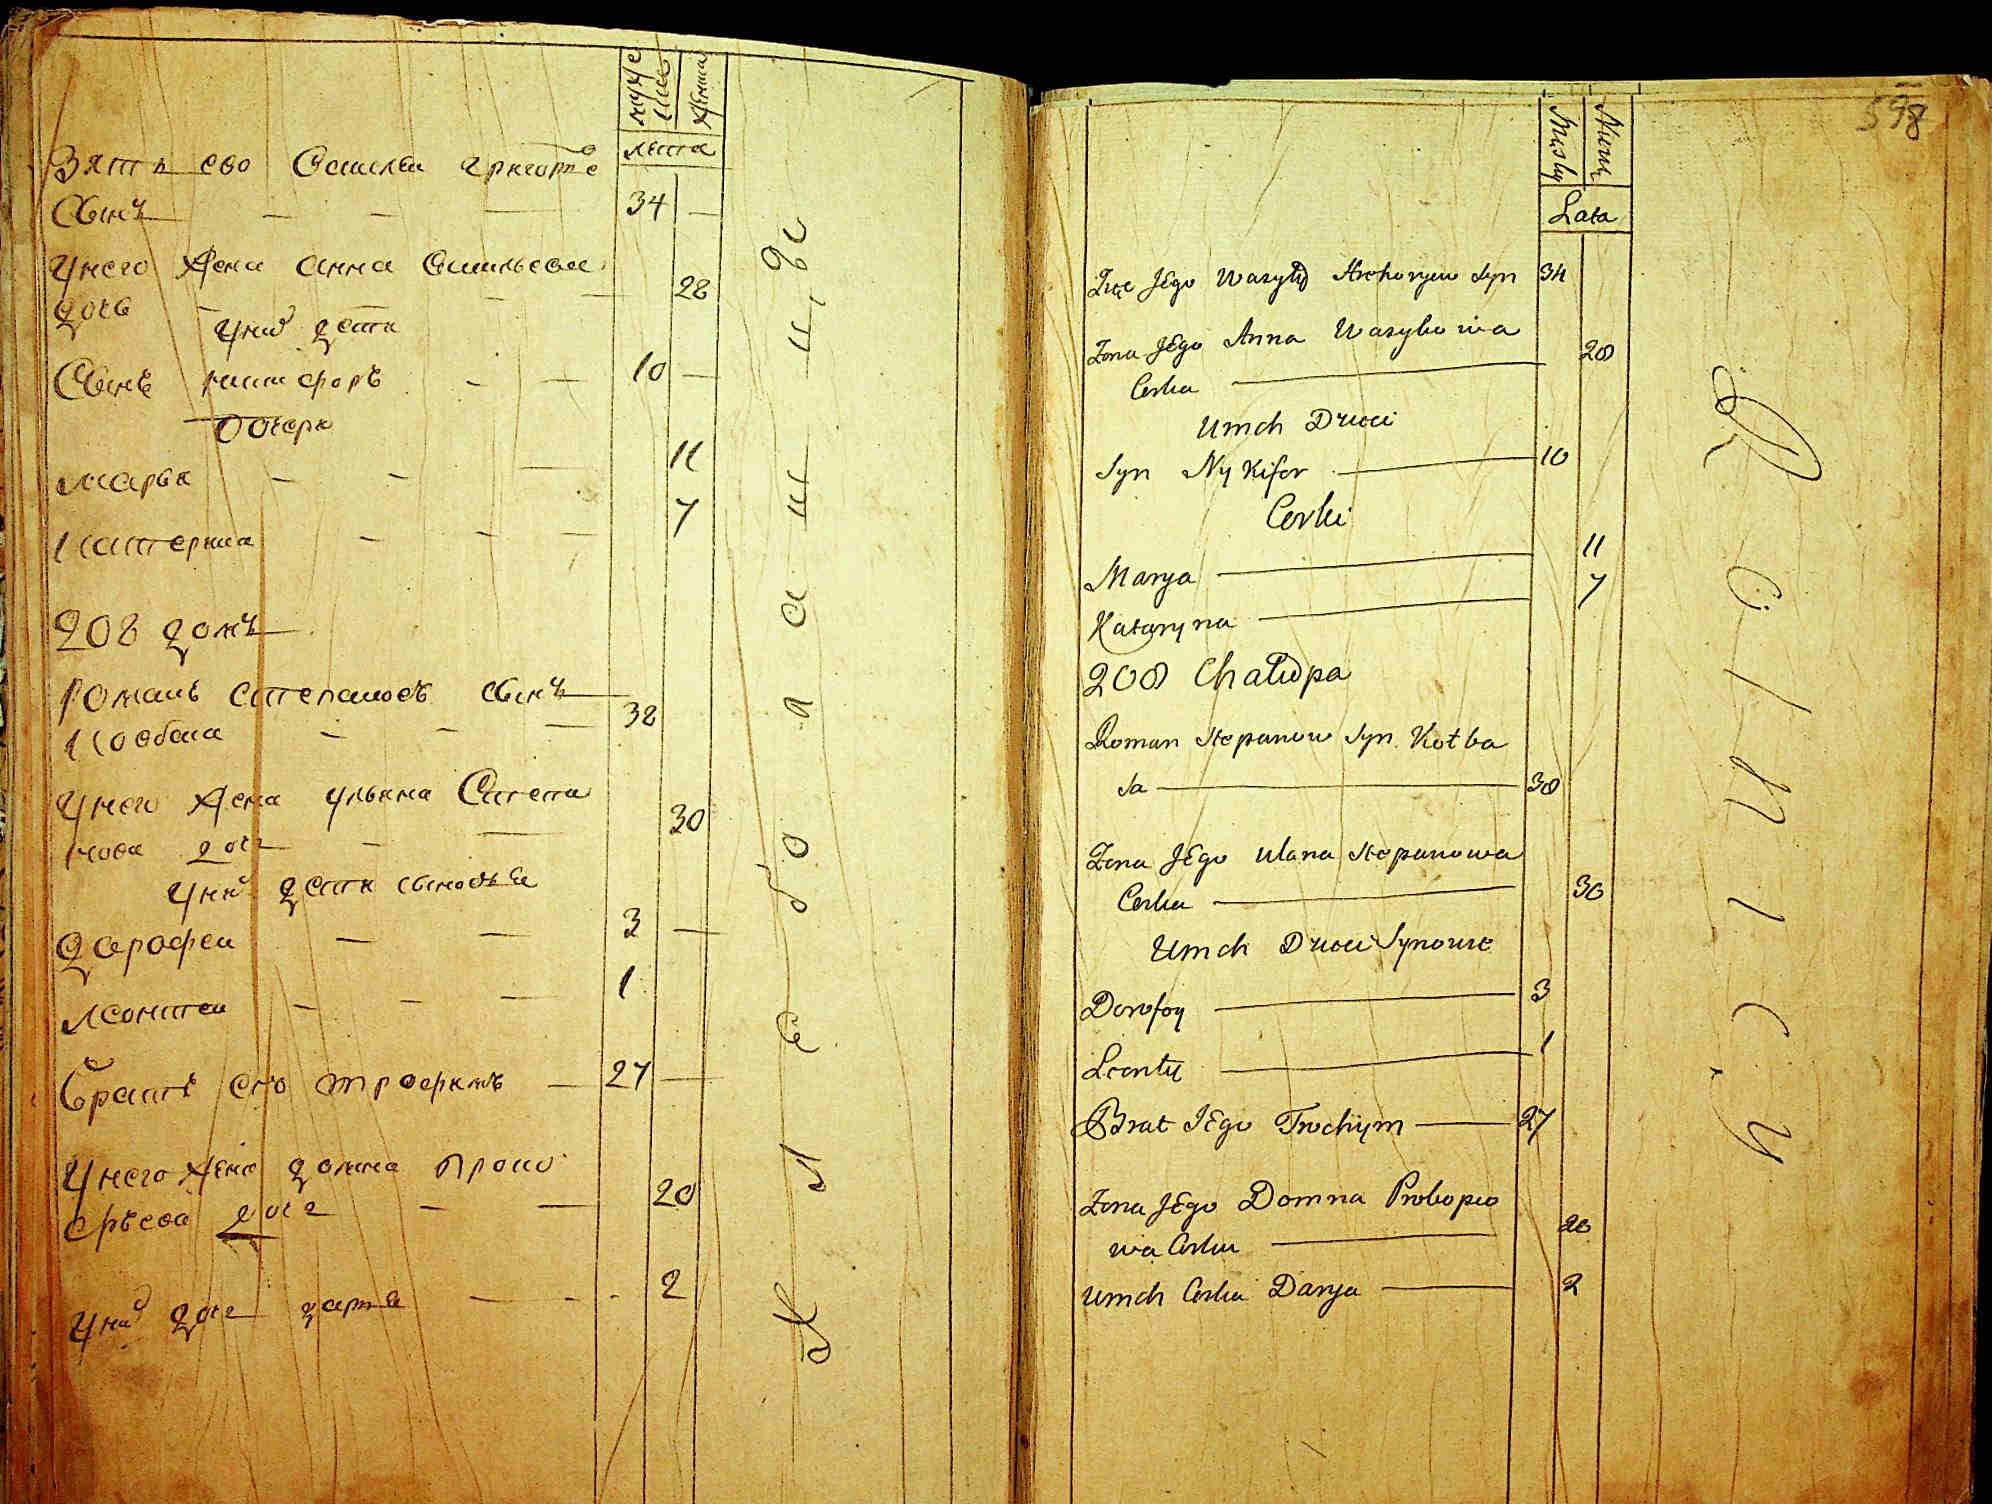 муже
ска
женска
лета
Зять его Василеи григорье
Сынъ — — — 34 —
Унего жена анна васильева
дочь — — — 28
Уних дети
Сынъ никифоръ — — 10 —
Дочери
марья — — — 11
Катерина — — — 7
208 домъ
Романъ степановъ сынъ
Ковбаса — — — 38
Унего жена ульяна Степа
нова дочь — — 30
Уних дети сыновья
дорофеи — — 3 —
леонтеи — — — 1
братъ его трофимъ — 27 —
Унего жена домна проко
фьева дочь — — 20
Уних дочь дарья — — 2
Хлебопашцы
598
Męsky
Lata
Zięc JEgo Wasyly Hrehoryew Syn 34
Zona JEgo Anna Wasylowa
Corka — 28
Umch Dzieci
Syn Nykifor — 10
Corki
Marya — 11
Kataryna — 7
208 Chałupa
Roman Stepanow Syn Kołba
sa — 38
Zona JEgo Ulana Stepanowa
Corka — 30
Umch Dzieci Synowie
Dorofey — 3
Leonty — 1
Brat JEgo Trochym — 27
Zona JEgo Domna Prokopio
wa Corka — 20
Umch Corka Darya — 2
Rolnicy